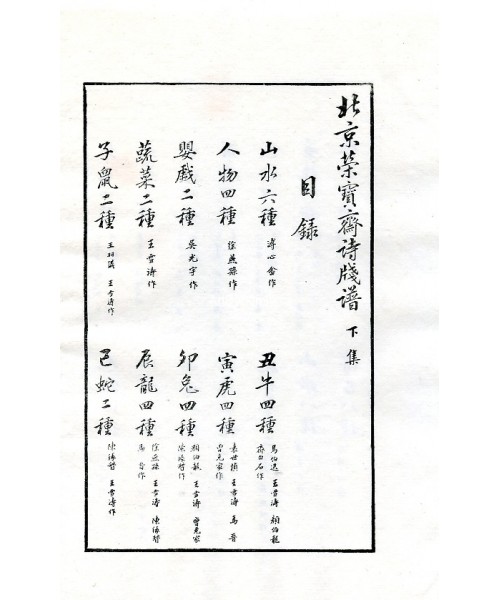 北京榮寶齋詩牋譜 下集
目録
山水六種 溥心畬作
人物四種 徐燕孫作
嬰戲二種 吳光宇作
蔬菜二種 王雪濤作
子鼠二種 王羽儀 王雪濤作
丑牛四種 馬伯逸 王雪濤 顏伯龍 齊白石作
寅虎四種 王雪濤 馬晉 曹克家作
卯兔四種 顏伯龍 王雪濤 曹克家 陳緣督作
辰龍四種 徐燕孫 王雪濤 陳緣督 馬晉作
巳蛇二種 陳緣督 王雪濤作